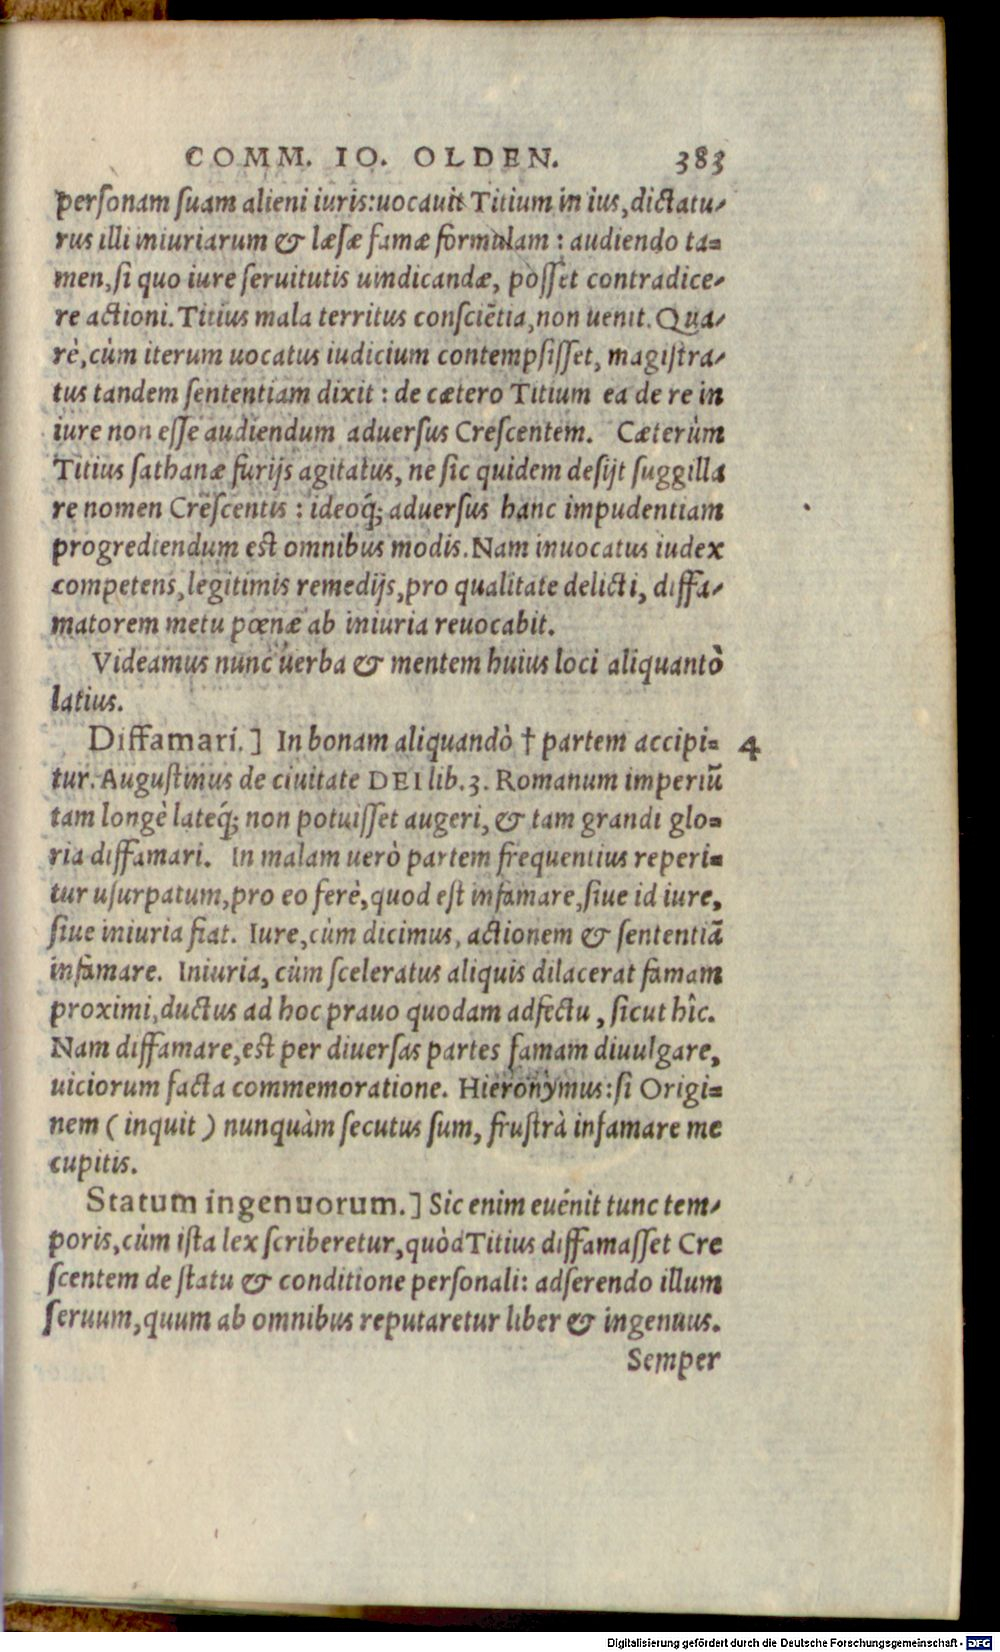 COMM. IO. OLDEN. 383
perſonam ſuam alieni iuris: uocauit Titium in ius, dictatu-
rus illi iniuriarum & læſæ famæ formulam : audiendo ta=
men, ſi quo iure ſeruitutis uindicandæ, poſſet contradice-
re actioni. Titius mala territus conſciẽtia, non uenit. Qua-
rè, cùm iterum uocatus iudicium contempſiſſet, magiſtra-
tus tandem ſententiam dixit : de cætero Titium ea de re in
iure non eſſe audiendum aduerſus Creſcentem. Cæterùm
Titius ſathanæ furijs agitatus, ne ſic quidem deſijt ſuggilla
re nomen Creſcentis : ideoq́; aduerſus hanc impudentiam
progrediendum eſt omnibus modis. Nam inuocatus iudex
competens, legitimis remedijs, pro qualitate delicti, diffa-
matorem metu pœnæ ab iniuria reuocabit.
Videamus nunc uerba & mentem huius loci aliquantò
latius.
Diffamari.] In bonam aliquandò † partem accipi= 4
tur. Auguſtinus de ciuitate DEI lib. 3. Romanum imperiũ
tam longè lateq́; non potuiſſet augeri, & tam grandi glo=
ria diffamari. In malam uerò partem frequentius reperi=
tur uſurpatum, pro eo ferè, quod eſt infamare, ſiue id iure,
ſiue iniuria fiat. Iure, cùm dicimus, actionem & ſententiã
infamare. Iniuria, cùm ſceleratus aliquis dilacerat famam
proximi, ductus ad hoc prauo quodam adfectu, ſicut hîc.
Nam diffamare, eſt per diuerſas partes famam diuulgare,
uiciorum facta commemoratione. Hieronymus: ſi Origi=
nem ( inquit ) nunquàm ſecutus ſum, fruſtrà infamare me
cupitis.
Statum ingenuorum.] Sic enim euenit tunc tem-
poris, cùm iſta lex ſcriberetur, quòd Titius diffamaſſet Cre
ſcentem de ſtatu & conditione perſonali: adſerendo illum
ſeruum, quum ab omnibus reputaretur liber & ingenuus.
Semper
Digitalisierung gefördert durch die Deutsche Forschungsgemeinschaft - DFG